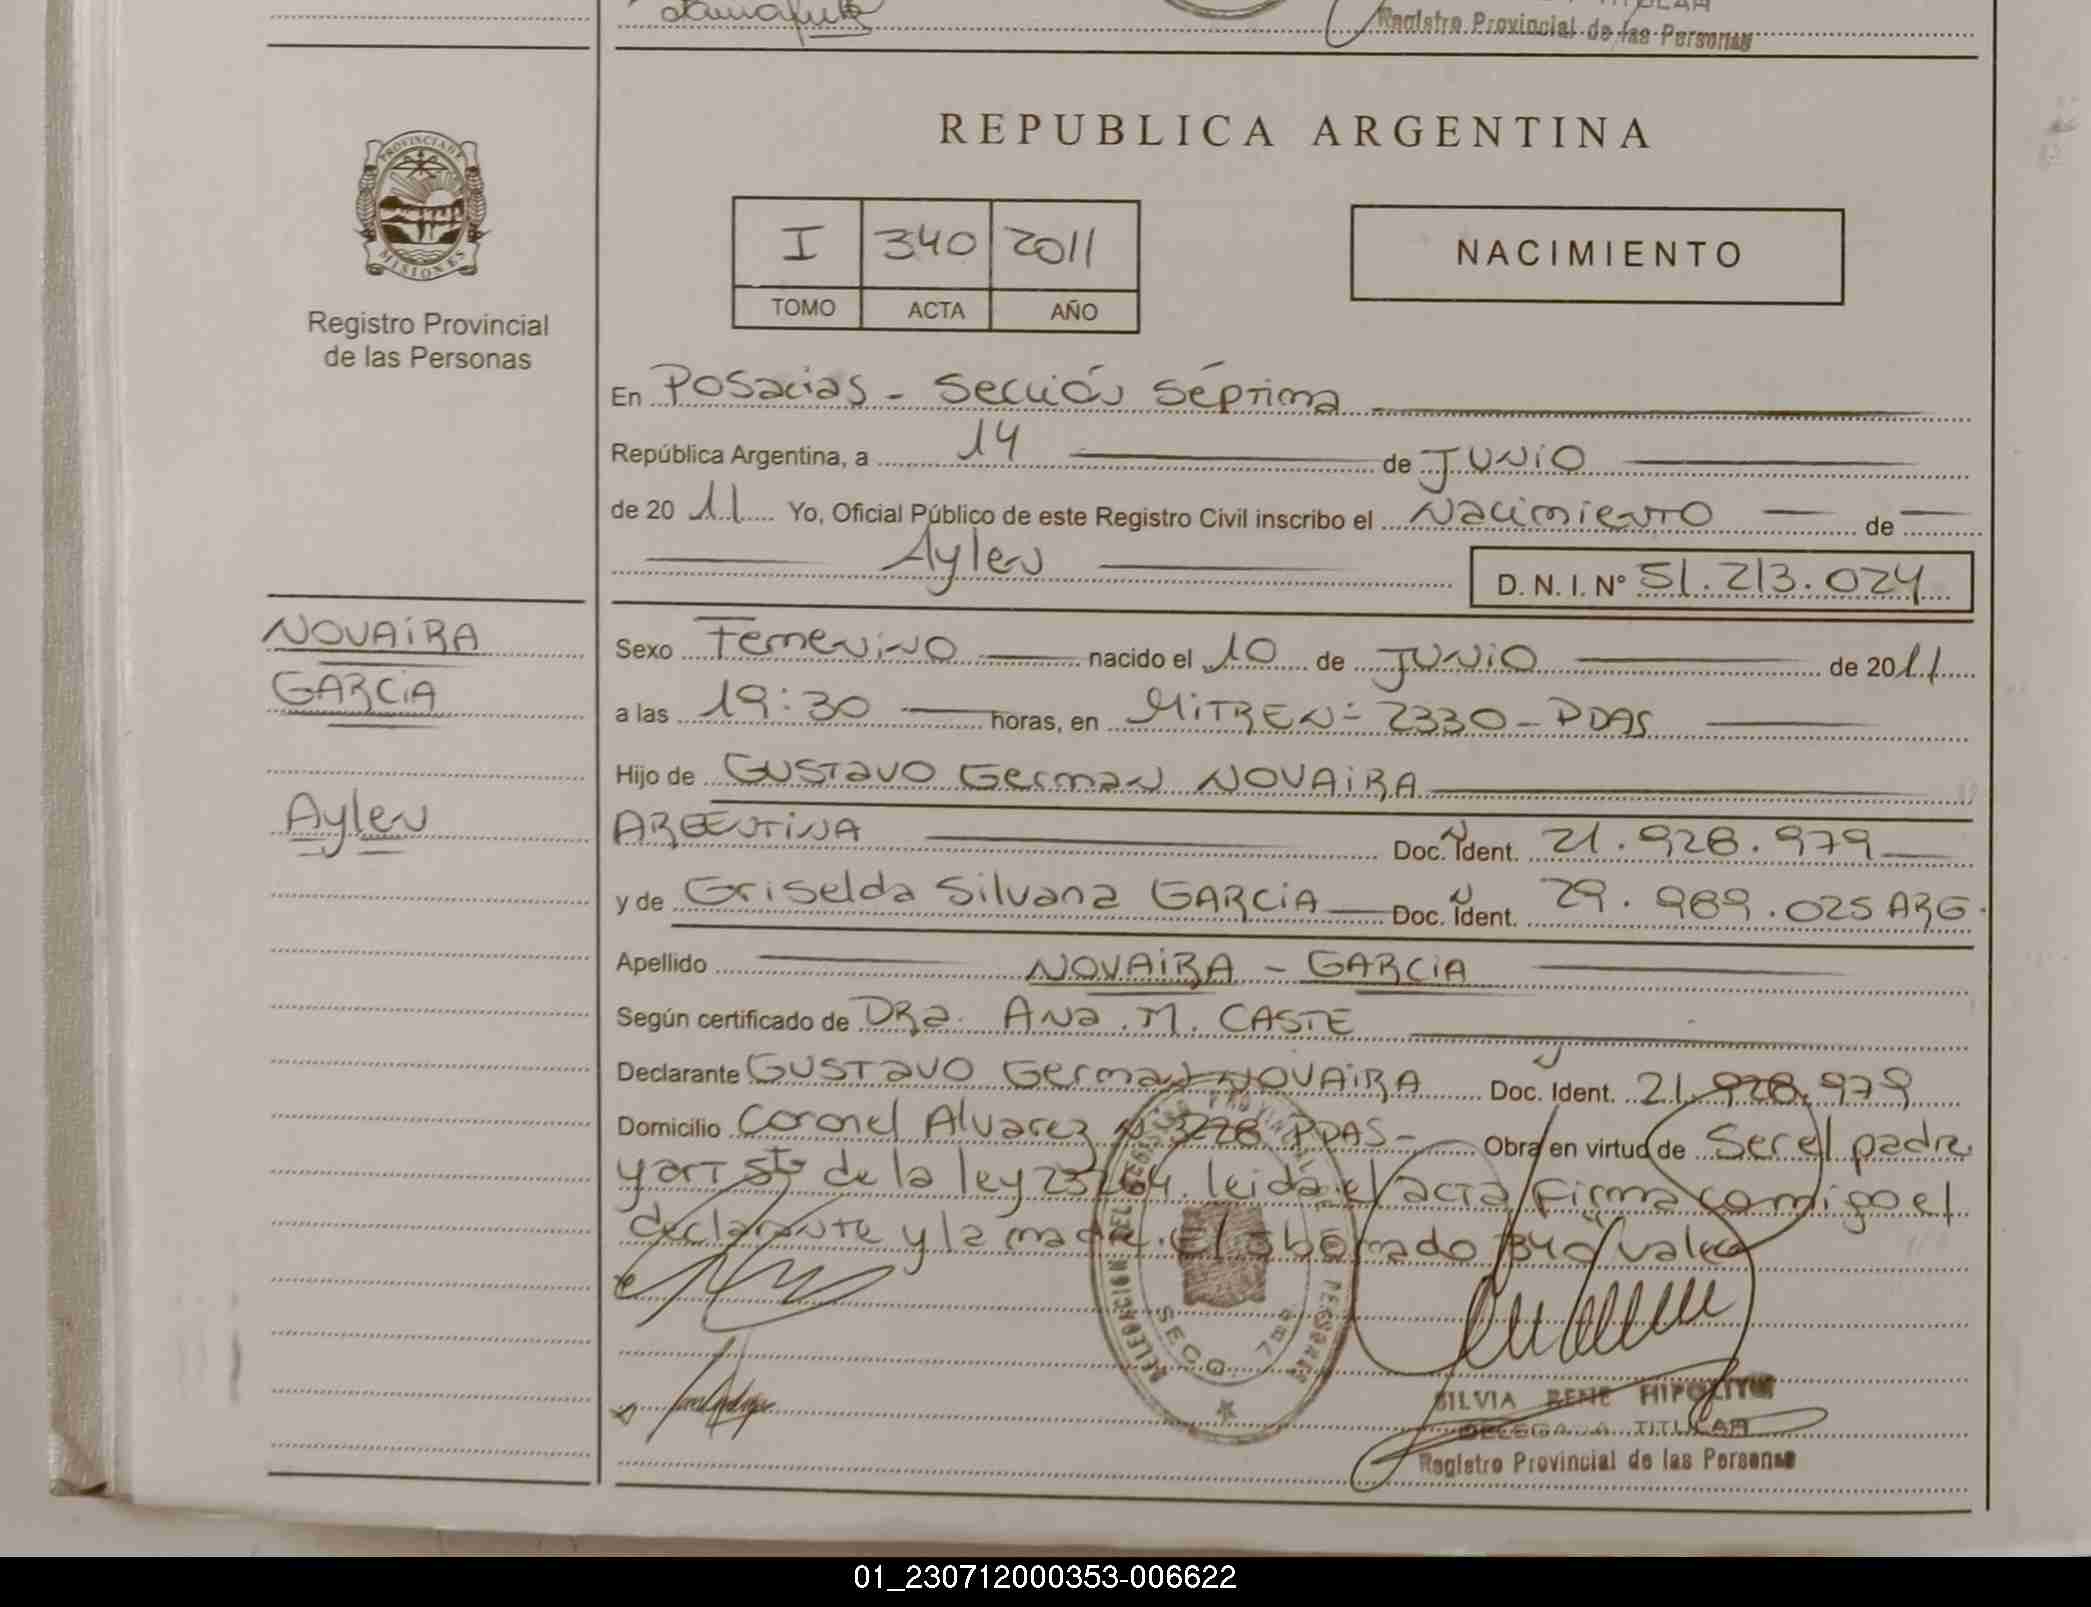 TITULAR
Registro Provincial de las Personas
PROVINCIA DE
MISIONES
Registro Provincial
de las Personas
REPUBLICA ARGENTINA
I 340 2011
TOMO ACTA AÑO
NACIMIENTO
En Posadas - Sección Séptima
República Argentina, a 14 de JUNIO
de 20 11 Yo, Oficial Público de este Registro Civil inscribo el Nacimiento de
Aylen
D. N. I. Nº 51.213.024
NOVAIRA
GARCIA
Aylen
Sexo Femenino nacido el 10 de JUNIO de 2011
a las 19:30 horas, en MITRE Nº 2330 - PDAS
Hijo de GUSTAVO German NOVAIRA
ARGENTINA Doc. Ident. 21.928.979
y de Griselda Silvana GARCIA Doc. Ident. 29.989.025 ARG.
Apellido NOVAIRA - GARCIA
Según certificado de DRa. Ana. M. CASTE
Declarante GUSTAVO German NOVAIRA Doc. Ident. 21.928.979
Domicilio Coronel Alvarez Nº 3228 PDAS- Obra en virtud de Ser el padre
y art 5to de la ley 23264. leida el acta firma conmigo el
declarante y la madre. El sobrerraspado "340" vale
SECC 7ma
SILVIA RENE HIPOLITO
DELEGADA TITULAR
Registro Provincial de las Personas
01_230712000353-006622